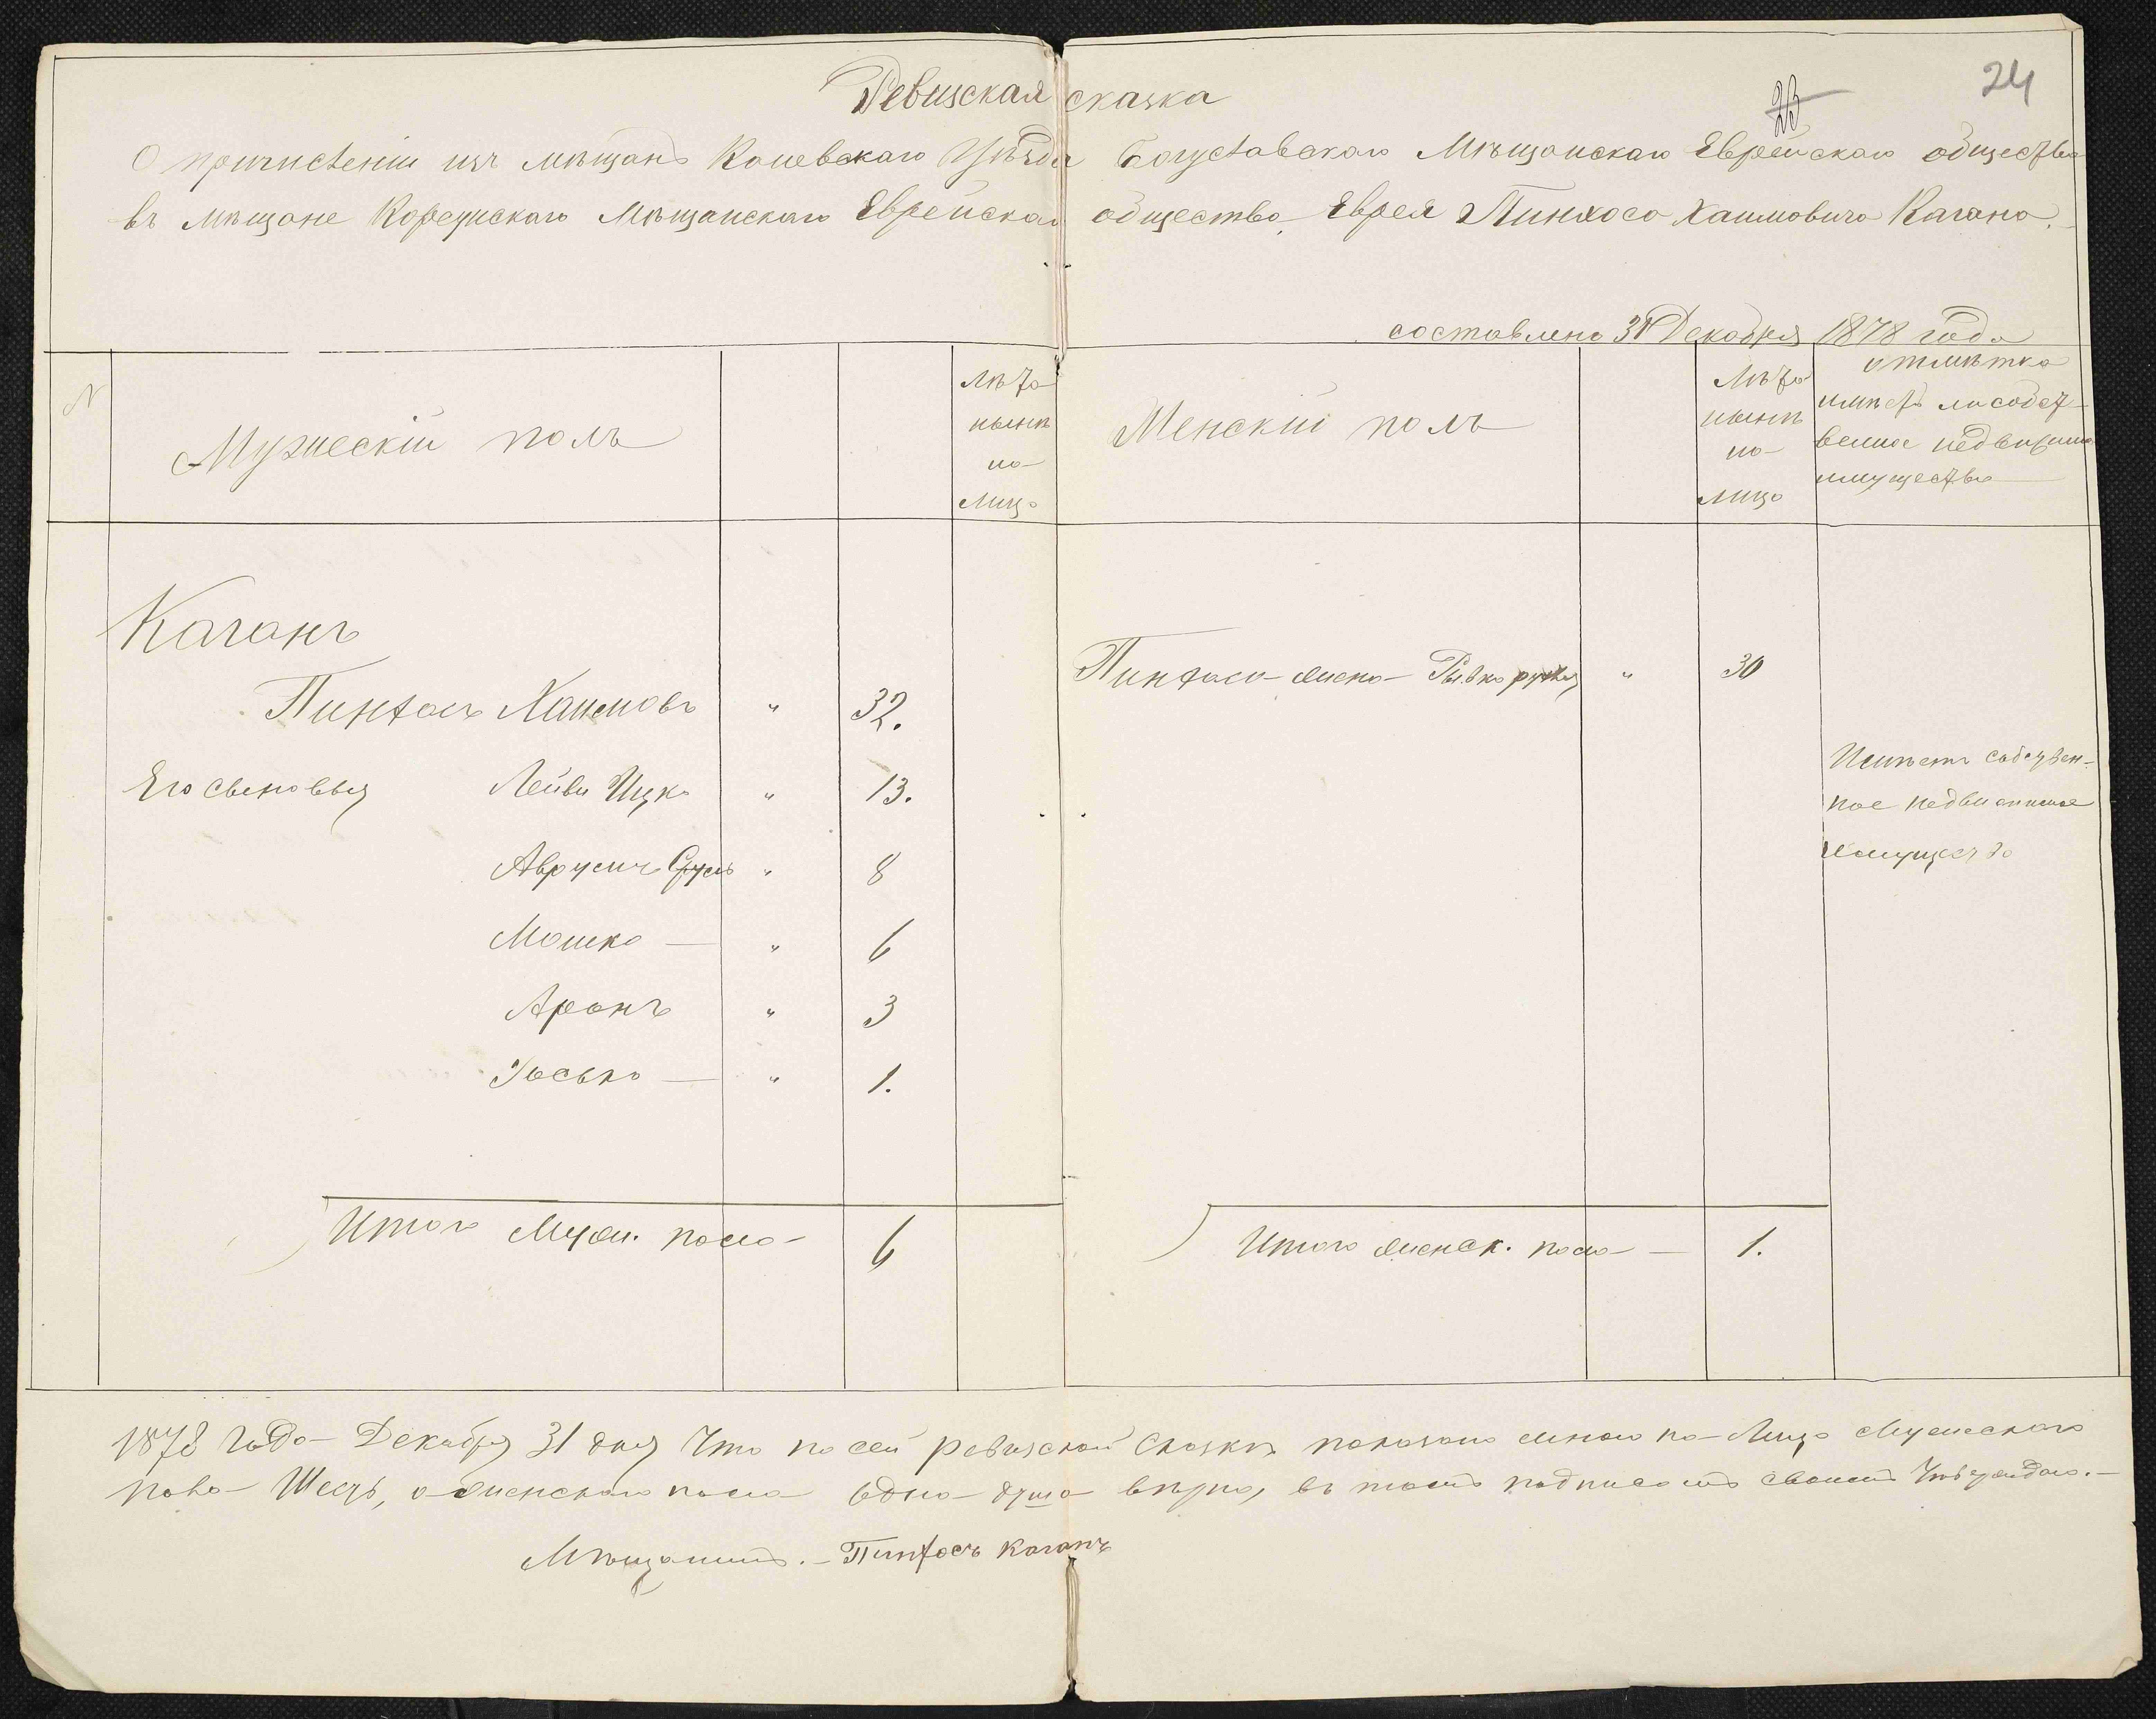 24
23
Ревизская сказка
О причисленіи изъ мѣщанъ Каневскаго Уѣзда Богуславскаго Мѣщанскаго Еврейскаго общества
въ мѣщане Корсунскаго Мѣщанскаго Еврейскаго общество, Еврея Пинхоса Хаимовича Кагана.
составлена 31 Декабря 1878 года
N
Мужескій полъ
Лѣта
нынѣ
на-
лицо
Женскій полъ
Лѣта
нынѣ
на-
лицо
отмѣтка
имѣетъ ли собст-
венное недвижимое
имущество
Каганъ
Пинхосъ Хаимовъ " 32.
Пинхоса жена Рывка " 30
Его сыновья Лейви Ицко " 13.
Имѣетъ собствен-
ное недвижимое
имущество
Аврумъ Сруль " 8
Мошко — " 6
Аронъ " 3
Іосько — " 1.
Итого Муж. пола 6
Итого женск. пола — 1.
1878 года Декабря 31 дня Что по сей ревизской сказкѣ показано мною на-Лицо Мужескаго
пола Шесть, а женскаго пола одна душа вѣрно, въ томъ подписомъ своимъ Утверждаю.—
Мѣщанинъ.— Пинхосъ Каганъ